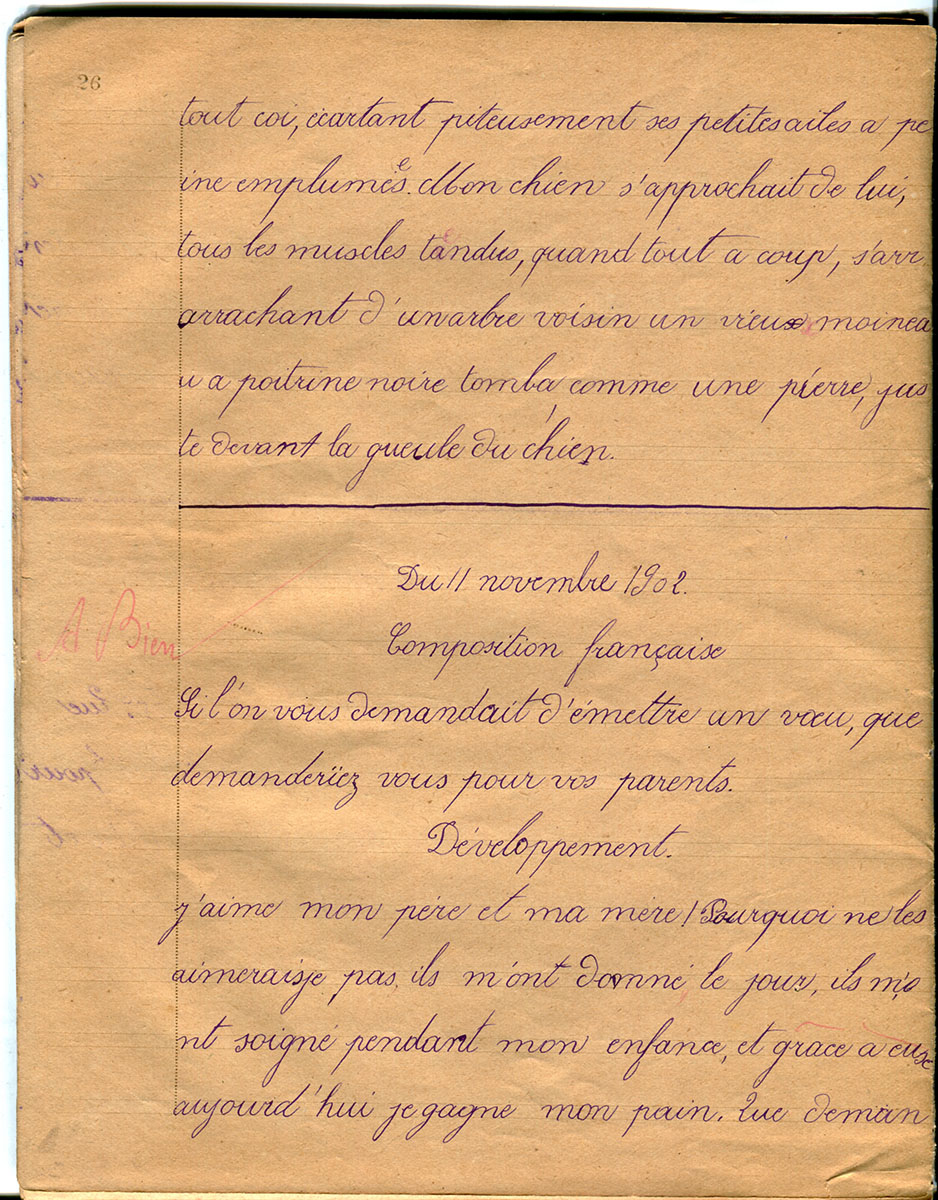 26
tout coi, écartant piteusement ses petites ailes a pe
ine emplumés. Mon chien s'approchait de lui,
e
tous les muscles tandus, quand tout a coup, s'arr
arrachant d'un arbre voisin un vieux moinea
u a poitrine noire tomba comme une pierre, jus
te devant la gueule du chien.
Du 11 novembre 1902.
Composition française
A Bien
Si l'on vous demandait d'émettre un vœu, que
demanderïez vous pour vos parents.
Développement.
j'aime mon père et ma mère! Pourquoi ne les
aimeraisje pas, ils m'ont donné le jour, ils m'o
nt soigné pendant mon enfance, et grace a eux
aujourd'hui je gagne mon pain. Que deman